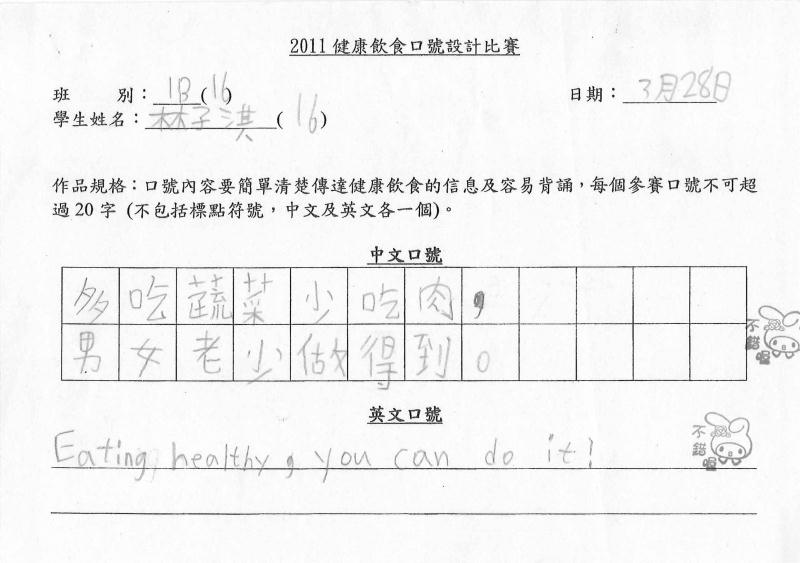 2011 健康飲食口號設計比賽
班 別：1B(16) 日期：3月28日
學生姓名：林子淇(16)
作品規格：口號內容要簡單清楚傳達健康飲食的信息及容易背誦，每個參賽口號不可超
過 20 字 (不包括標點符號，中文及英文各一個)。
中文口號
多吃蔬菜少吃肉，
男女老少做得到。
不錯喔
英文口號
Eating healthy, you can do it!
不錯喔